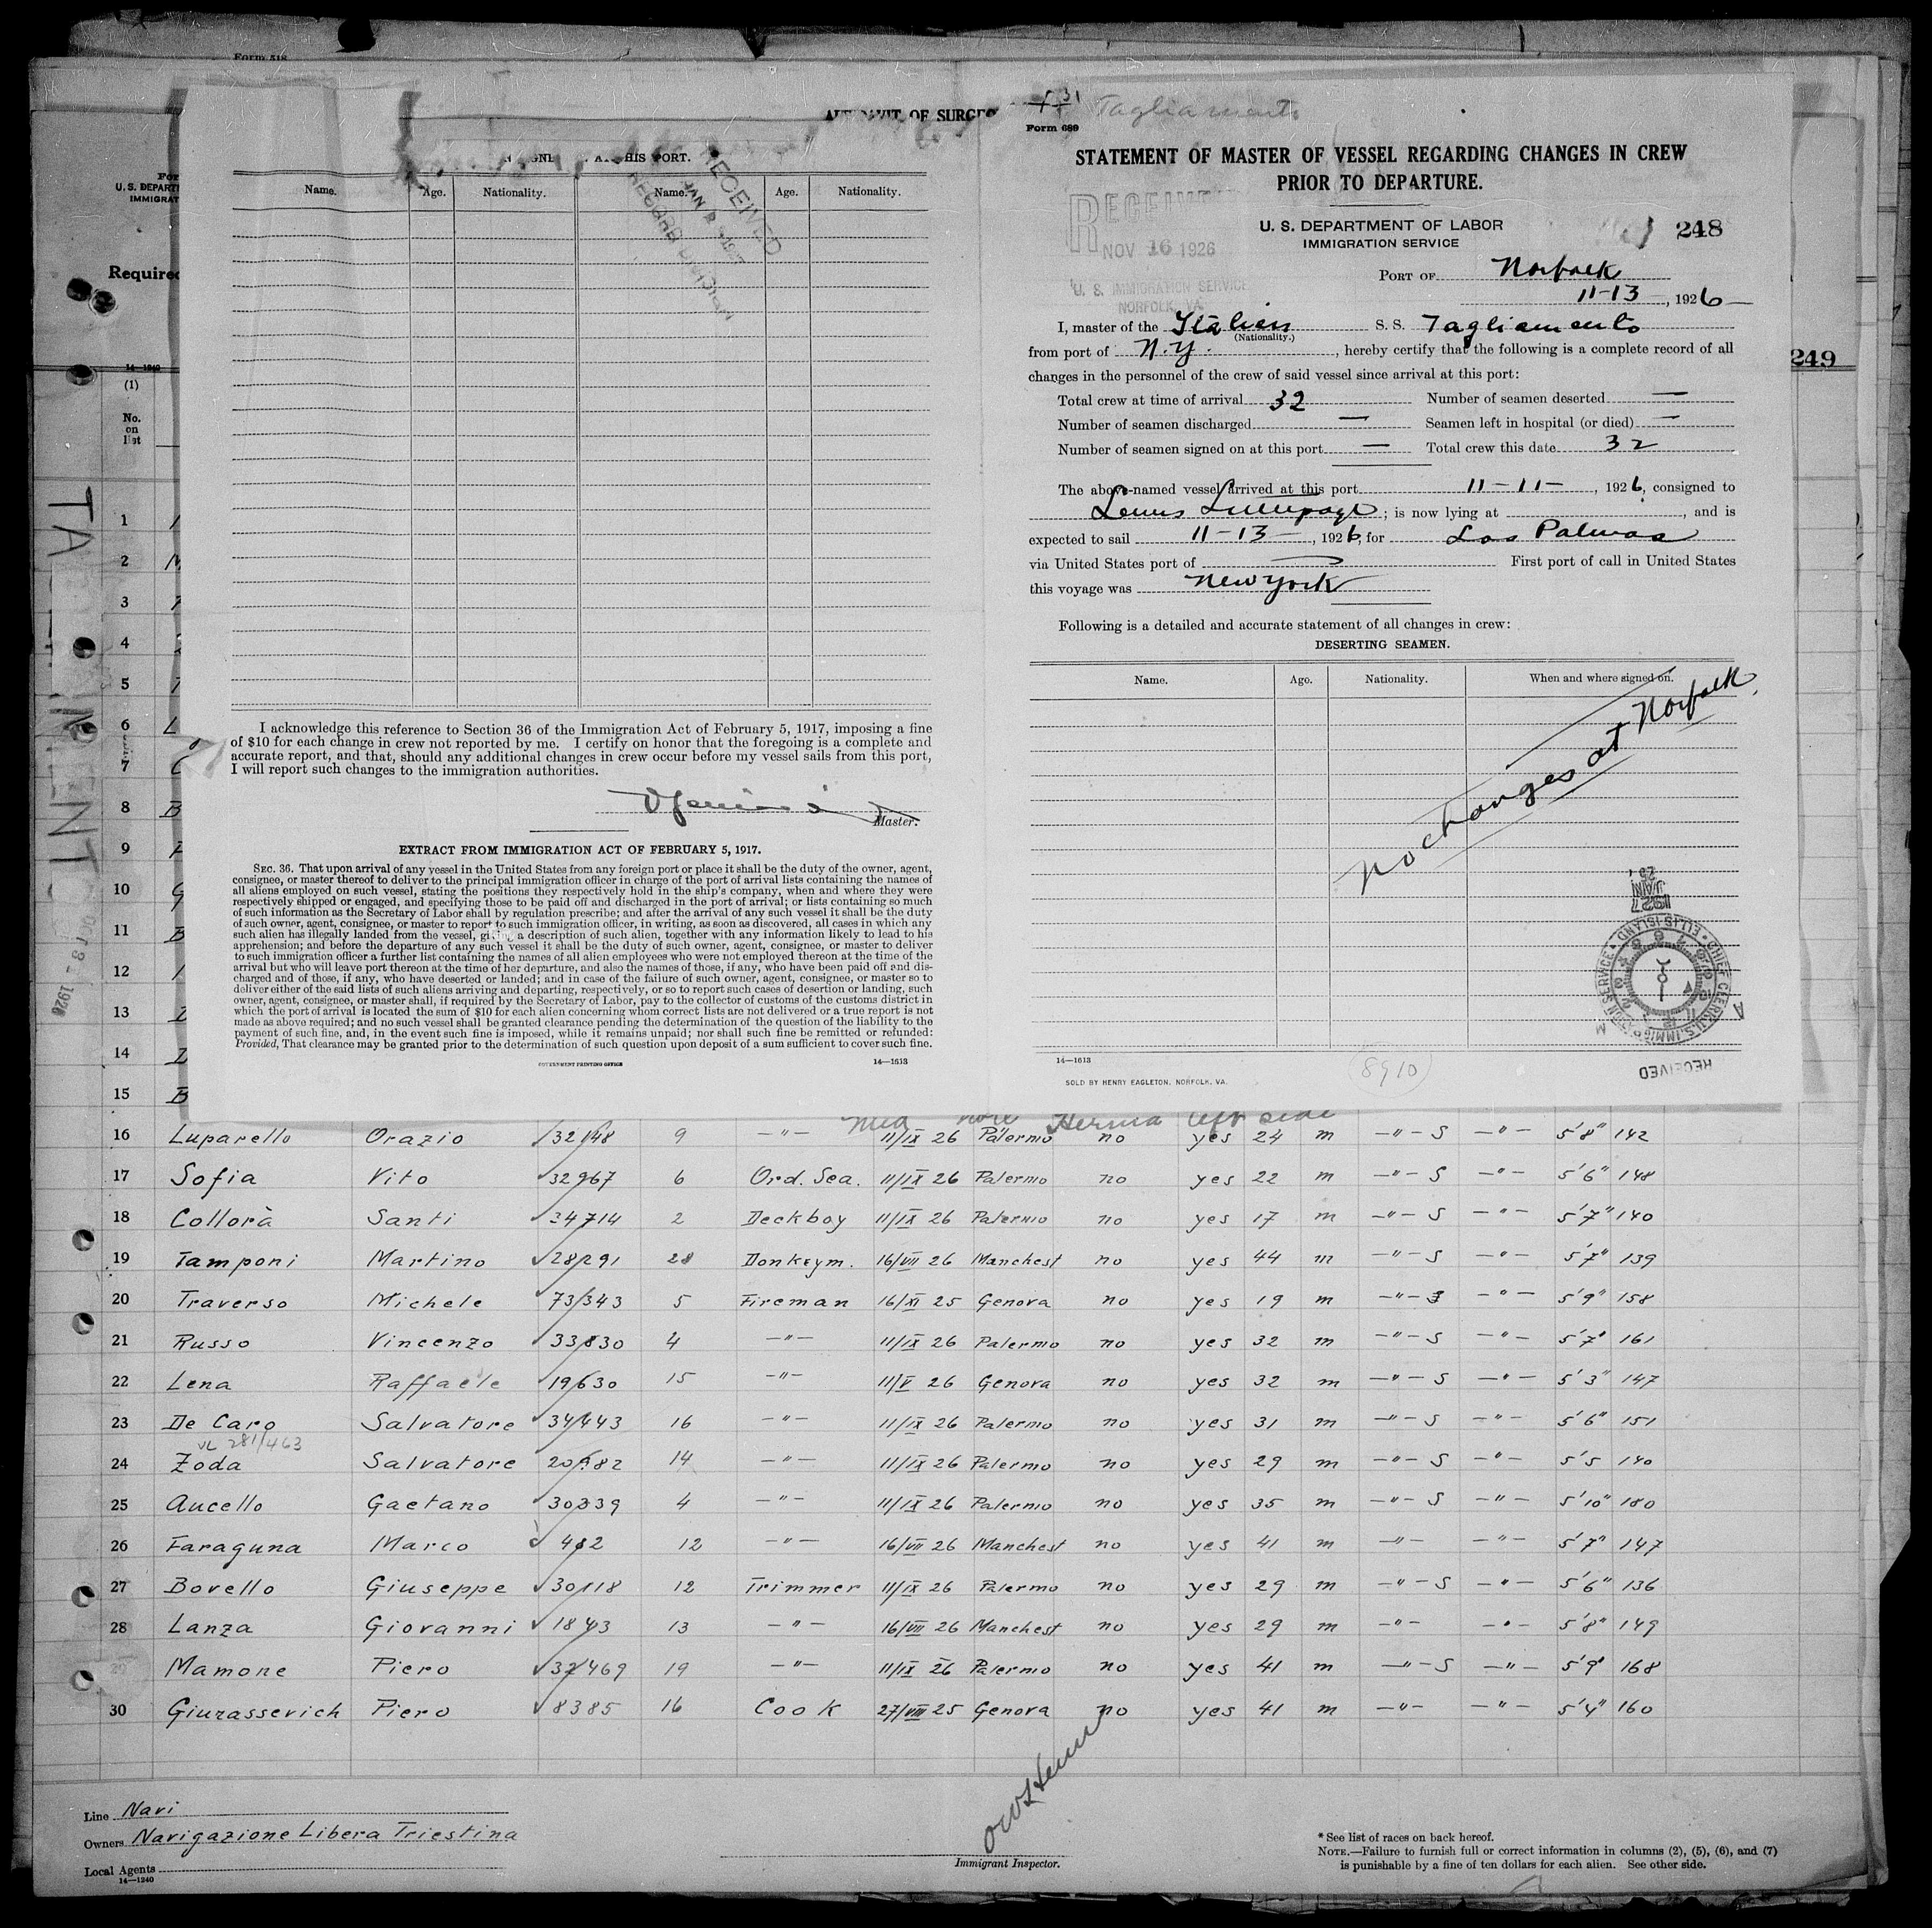 Form 518
249
For
U. S. DEPARTM
IMMIGRAT
Required
14—1240
(1)
No.
on
list
1
2
3
4
5
6
7
8
9
10
11
12
13
14
15
AFFIDAVIT OF SURGEO
AT THIS PORT.
Name. Age. Nationality. Name. Age. Nationality.
RECEIVED
JAN
RECORD DIVISION
I acknowledge this reference to Section 36 of the Immigration Act of February 5, 1917, imposing a fine
of $10 for each change in crew not reported by me. I certify on honor that the foregoing is a complete and
accurate report, and that, should any additional changes in crew occur before my vessel sails from this port,
I will report such changes to the immigration authorities.
Master.
EXTRACT FROM IMMIGRATION ACT OF FEBRUARY 5, 1917.
SEC. 36. That upon arrival of any vessel in the United States from any foreign port or place it shall be the duty of the owner, agent,
consignee, or master thereof to deliver to the principal immigration officer in charge of the port of arrival lists containing the names of
all aliens employed on such vessel, stating the positions they respectively hold in the ship's company, when and where they were
respectively shipped or engaged, and specifying those to be paid off and discharged in the port of arrival; or lists containing so much
of such information as the Secretary of Labor shall by regulation prescribe; and after the arrival of any such vessel it shall be the duty
of such owner, agent, consignee, or master to report to such immigration officer, in writing, as soon as discovered, all cases in which any
such alien has illegally landed from the vessel, giving a description of such alien, together with any information likely to lead to his
apprehension; and before the departure of any such vessel it shall be the duty of such owner, agent, consignee, or master to deliver
to such immigration officer a further list containing the names of all alien employees who were not employed thereon at the time of the
arrival but who will leave port thereon at the time of her departure, and also the names of those, if any, who have been paid off and dis-
charged and of those, if any, who have deserted or landed; and in case of the failure of such owner, agent, consignee, or master so to
deliver either of the said lists of such aliens arriving and departing, respectively, or so to report such cases of desertion or landing, such
owner, agent, consignee, or master shall, if required by the Secretary of Labor, pay to the collector of customs of the customs district in
which the port of arrival is located the sum of $10 for each alien concerning whom correct lists are not delivered or a true report is not
made as above required; and no such vessel shall be granted clearance pending the determination of the question of the liability to the
payment of such fine, and, in the event such fine is imposed, while it remains unpaid; nor shall such fine be remitted or refunded:
Provided, That clearance may be granted prior to the determination of such question upon deposit of a sum sufficient to cover such fine.
GOVERNMENT PRINTING OFFICE 14—1613
Tagliamento
Form 689
STATEMENT OF MASTER OF VESSEL REGARDING CHANGES IN CREW
PRIOR TO DEPARTURE.
U. S. DEPARTMENT OF LABOR
IMMIGRATION SERVICE
248
RECEIVED
NOV 16 1926
U. S. IMMIGRATION SERVICE
NORFOLK, VA.
PORT OF Norfolk
11-13-, 1926-
I, master of the Italien S. S. Tagliamento
(Nationality.)
from port of N.Y., hereby certify that the following is a complete record of all
changes in the personnel of the crew of said vessel since arrival at this port:
Total crew at time of arrival 32 Number of seamen deserted —
Number of seamen discharged — Seamen left in hospital (or died) —
Number of seamen signed on at this port — Total crew this date 32
The above-named vessel arrived at this port 11-11-, 1926, consigned to
; is now lying at , and is
expected to sail 11-13-, 1926, for Las Palmas
via United States port of — First port of call in United States
this voyage was New York
Following is a detailed and accurate statement of all changes in crew:
DESERTING SEAMEN.
Name. Age. Nationality. When and where signed on.
No changes at Norfolk.
1927
JAN
CHIEF CLERK U.S. IMMIGRATION SERVICE ELLIS ISLAND
RECEIVED
14—1613
8910
SOLD BY HENRY EAGLETON, NORFOLK, VA.
Hernia left side
16 Luparello Orazio 32148 9 —"— 11/IX 26 Palermo no yes 24 m —"— S —"— 5'8" 142
17 Sofia Vito 32967 6 Ord. Sea. 11/IX 26 Palermo no yes 22 m —"— S —"— 5'6" 148
18 Collorà Santi 34714 2 Deckboy 11/IX 26 Palermo no yes 17 m —"— S —"— 5'7" 140
19 Tamponi Martino 28291 28 Donkeym. 16/VII 26 Manchest no yes 44 m —"— S —"— 5'7" 139
20 Traverso Michele 73343 5 Fireman 16/XI 25 Genova no yes 19 m —"— S —"— 5'9" 158
21 Russo Vincenzo 33830 4 —"— 11/IX 26 Palermo no yes 32 m —"— S —"— 5'7" 161
22 Lena Raffaele 19630 15 —"— 11/V 26 Genova no yes 32 m —"— S —"— 5'3" 147
23 De Caro Salvatore 34443 16 —"— 11/IX 26 Palermo no yes 31 m —"— S —"— 5'6" 151
VL 281/463
24 Zoda Salvatore 14 —"— 11/IX 26 Palermo no yes 29 m —"— S —"— 5'5 140
25 Aucello Gaetano 30339 4 —"— 11/IX 26 Palermo no yes 35 m —"— S —"— 5'10" 180
26 Faraguna Marco 482 12 —"— 16/VII 26 Manchest no yes 41 m —"— —"— 5'7" 147
27 Bovello Giuseppe 30118 12 Trimmer 11/IX 26 Palermo no yes 29 m —"— S —"— 5'6" 136
28 Lanza Giovanni 1843 13 —"— 16/VII 26 Manchest no yes 29 m —"— —"— 5'8" 149
29 Mamone Piero 32469 19 —"— 11/IX 26 Palermo no yes 41 m —"— S —"— 5'9" 168
30 Giurassevich Piero 8385 16 Cook 27/VIII 25 Genova no yes 41 m —"— —"— 5'4" 160
Line Navi
Owners Navigazione Libera Triestina
Local Agents
14—1240
Immigrant Inspector.
* See list of races on back hereof.
NOTE.—Failure to furnish full or correct information in columns (2), (5), (6), and (7)
is punishable by a fine of ten dollars for each alien. See other side.